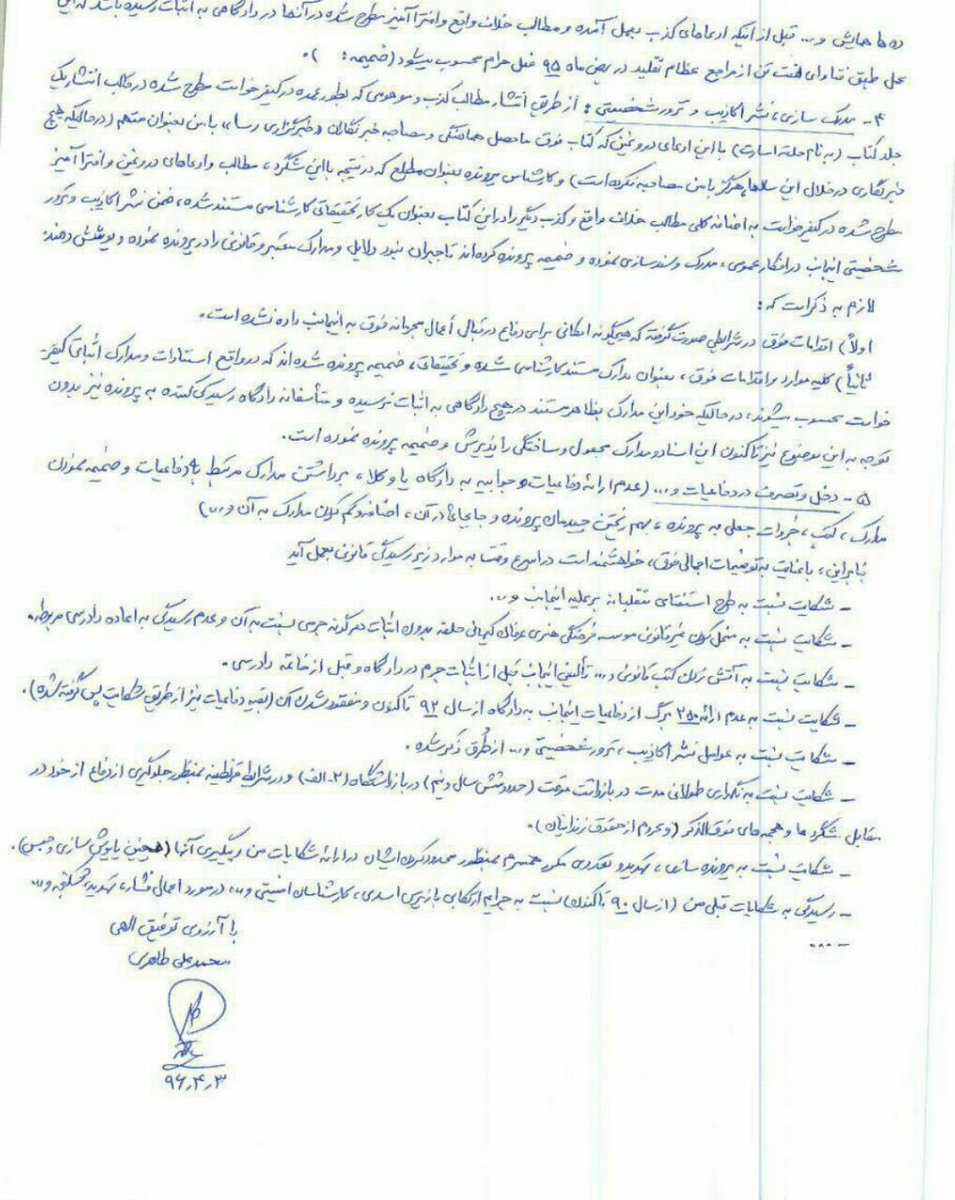 ده ها همایش و... قبل از آنکه ادعاهای کذب بعمل آمده و مطالب خلاف واقع و افترا آمیز مطرح شده در آنها در دادگاهی به اثبات رسیده باشد که این
عمل طبق فتاوای هفت تن از مراجع عظام تقلید در بهمن ماه ۹۵ فعل حرام محسوب میشود (ضمیمه: ).
۴- مدرک سازی، نشر اکاذیب و ترور شخصیتی: از طریق انتشار مطالب کذب و موهومی که بطور عمده در کیفرخواست مطرح شده در قالب انتشار یک
جلد کتاب (به نام حلقه اسارت) با این ادعای دروغین که کتاب فوق ماحصل هماهنگی و مصاحبه خبرنگاران «خبرگزاری رسا» با من بعنوان متهم (درحالیکه هیچ
خبرنگاری در خلال این سالها هرگز با من مصاحبه نکرده است) و کارشناس پرونده بعنوان مطلع که در نتیجه با این شگرد، مطالب و ادعاهای دروغین و افترا آمیز
مطرح شده در کیفرخواست به اضافه کلی مطالب خلاف واقع و کذب دیگر را در این کتاب بعنوان یک کار تحقیقاتی کارشناسی مستند شده، ضمن نشر اکاذیب و ترور
شخصیتی اینجانب در افکار عمومی، مدرک و سند سازی نموده و ضمیمه پرونده کرده اند تا جبران نبود دلایل و مدارک معتبر و قانونی را در پرونده نموده و پوشش دهند.
لازم به ذکر است که:
اولاً) اقدامات فوق در شرایطی صورت گرفته که هیچگونه امکانی برای دفاع در قبال اعمال مجرمانه فوق به اینجانب داده نشده است.
ثانیاً) کلیه موارد و اقدامات فوق، بعنوان مدارک مستند کارشناسی شده و تحقیقاتی، ضمیمه پرونده شده اند که در واقع استنادات و مدارک اثباتی کیفر
خواست محسوب میشوند، در حالیکه خود این مدارک بظاهر مستند در هیچ دادگاهی به اثبات نرسیده و متأسفانه دادگاه رسیدگی کننده به پرونده نیز بدون
توجه به این موضوع نیز تاکنون این اسناد و مدارک مجعول و ساختگی را پذیرش و ضمیمه پرونده نموده است.
۵- دخل و تصرف در دفاعیات و... (عدم ارائه دفاعیات و جوابیه به دادگاه یا وکلا، برداشتن مدارک مرتبط با دفاعیات و ضمیمه نمودن
مدارک، کتب، جزوات جعلی به پرونده، بهم ریختن چیدمان پرونده و جابجائی در آن، اضافه و کم کردن مدارک به آن و...)
بنابراین، با عنایت به توضیحات اجمالی فوق، خواهشمند است در اسرع وقت به موارد زیر رسیدگی قانونی بعمل آید
- شکایت نسبت به طرح استفتای متقلبانه بر علیه اینجانب و...
- شکایت نسبت به منحل کردن غیر قانونی موسسه فرهنگی هنری عرفان کیهانی حلقه بدون اثبات هر گونه جرمی نسبت به آن و عدم رسیدگی به اعاده دادرسی مربوطه.
- شکایت نسبت به آتش زدن کتب قانونی و... تألیفی اینجانب قبل از اثبات جرم در دادگاه و قبل از خاتمه دادرسی.
- شکایت نسبت به عدم ارائه ۲۵۰ برگ از دفاعیات اینجانب به دادگاه از سال ۹۲ تاکنون و مفقود شدن آن (بقیه دفاعیات نیز از طریق شکایت پس گرفته شده).
- شکایت نسبت به عوامل نشر اکاذیب، ترور شخصیتی و... از طُرق ذکر شده.
- شکایت نسبت به نگهداری طولانی مدت در بازداشت موقت (حدود شش سال و نیم) در بازداشتگاه (۲-الف) و در شرایط قرنطینه بمنظور جلوگیری از دفاع از خود در
مقابل شگردها و هجمه های فوق الذکر (و محروم از حقوق زندانیان).
- شکایت نسبت به پرونده سازی، تهدید و تعدی مکرر همسرم بمنظور محدود کردن ایشان در ارائه شکایات من و پیگیری آنها (همچنین پاپوش سازی و حبس).
- رسیدگی به شکایات قبلی من (از سال ۹۰ تاکنون) نسبت به جرایم ارتکابی بازپرس اسدی، کارشناسان امنیتی و... در مورد اعمال فشار، تهدید، شکنجه و...
- ....
با آرزوی توفیق الهی
محمد علی طاهری
۹۶،۴،۳